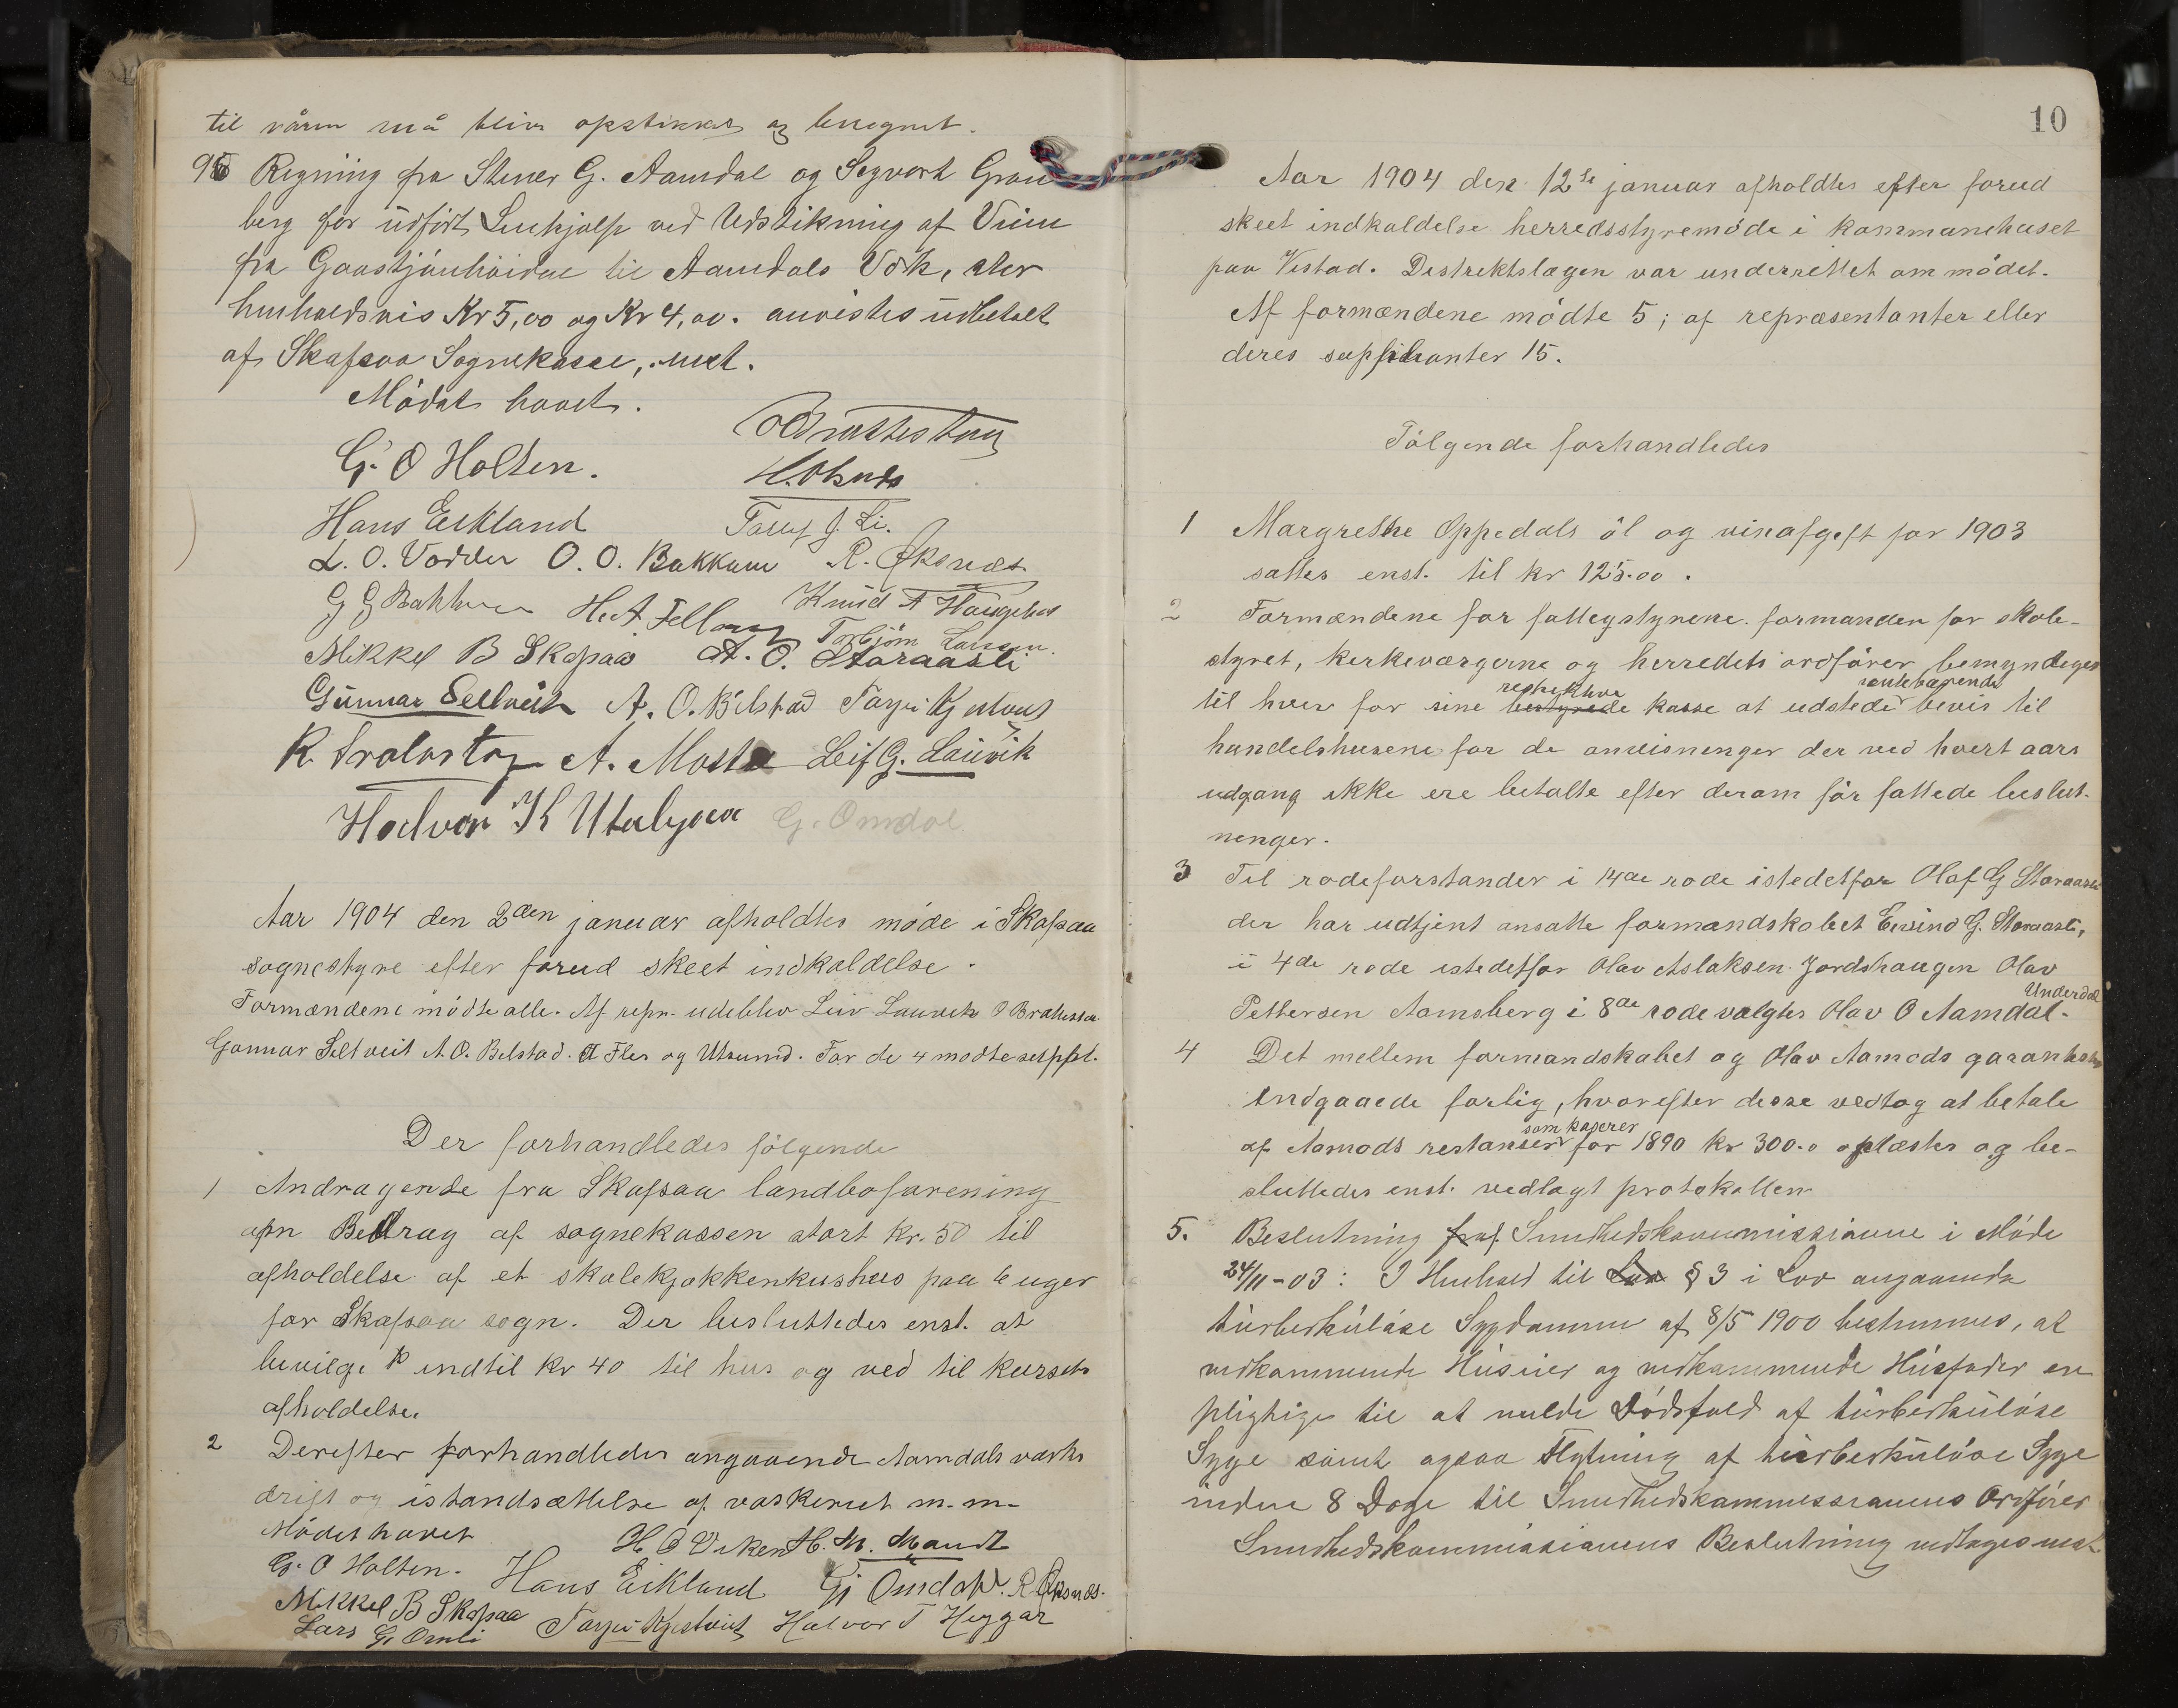 til våren må bliva opstikket og
9 Regning fra Stener G. Aamdal og Sigvart Grau
berg for udført Linkjelp ved Udstikning af Veien
fra til Aamdals Værk,
henholdsvis Kr 5,00 og Kr 4,00. anvistes udbetalt
af Skafsaa Sognekasse, enst.
Mødet hævet.
G. O Holten.
Hans Eikland
Tallef J. Li.
L. O. Vodder O. O. Bakkum R. Øksnæs
G G Bakkum Knud A Haugehus
Torbjörn Larsen.
Mikkel B Skafsaa A. O. Storaasli
Gunnar Seltveit A. O. Bilstad Tarjei Kjetveit
A. Mosta Leif G. Lauvik
Halvor K Utabjoer G. Omdal
Aar 1904 den 2den januar afholdtes møde i Skafsaa
sognestyre efter forud skeet indkaldelse.
Formændene mødte alle. Af repr. udeblev Leiv Lauvik O Brattestaa
Gunnar Seltveit A. O. Belstad. A Fles og Utsund. For de 4 mødte suppl.
Der forhandledes følgende
1 Andragende fra Skafsaa landboforening
om Bedrag af sognekassen stort kr. 50 til
afholdelse af et skolekjøkkenkushus paa 6 uger
for Skafsaa sogn. Der besluttedes enst. at
bevilge indtil kr 40 til hus og ved til kursets
afholdelse.
2 Derefter forhandledes angaaende Aamdals værks
drift og istandsættelse af vaskeriet m.m.
Mødet hævet
H. O Viken H. M. Mandt
G. O Holten. Hans Eikland G Omdal. R Øksnæs.
Mikkel B Skafsaa Tarjei Kjetveit Halvor T Heggar
Lars G Omli
10
Aar 1904 den 12te januar afholdtes efter forud
skeet indkaldelse herredsstyremøde i kommunehuset
paa Vistad. Distriktslægen var underrettet om mødet.
Af formændene mødte 5; af repræsentanter eller
deres suppleanter 15.
Følgende forhandledes
1 Margrethe Oppedals öl og vinafgift for 1903
sattes enst. til kr 125.00.
2 Formændene for fattigstyrene, formanden for skole-
styret, kirkeværgerne og herredets ordfører bemyndiges
til hver for sine bestyrede respektive kasse at udstede rentebærende bevis til
handelshusene for de anvisninger der ved hvert aars
udgang ikke ere betalte efter derom før fattede beslut-
ninger.
3 Til rodeforstander i 14de rode istedetfor Olaf G Storaasli
der har udtjent ansatte formandskabet Eivind G. Storaasli,
i 4de rode istedetfor Olav Aslaksen Jordshaugen Olav
Pettersen Aamsberg i 8de rode valgtes Olav O Aamdal Underdal.
4 Det mellem formandskabet og Olav Aamods garantister
indgaaede forlig, hvorefter disse vedtog at betale
af Aamods restanser som kaserer for 1890 kr 300.0 oplæstes og be-
sluttedes enst. vedlagt protokollen
5. Beslutning fra af Sundhedskommissionen i Møde
24/11-03: I Henhold til Lov § 3 i Lov angaaende
tuberkuløse Sygdomme af 8/5 1900 bestemmes, at
vedkommende Huseier og vedkommende Husfader er
pligtige til at melde Dødsfald af tuberkuløse
Syge samt ogsaa Flytning af tuberkuløse Syge
inden 8 Dage til Sundhedskommissionens Ordfører
Sundhedskommissionens Beslutning vedtages enst.